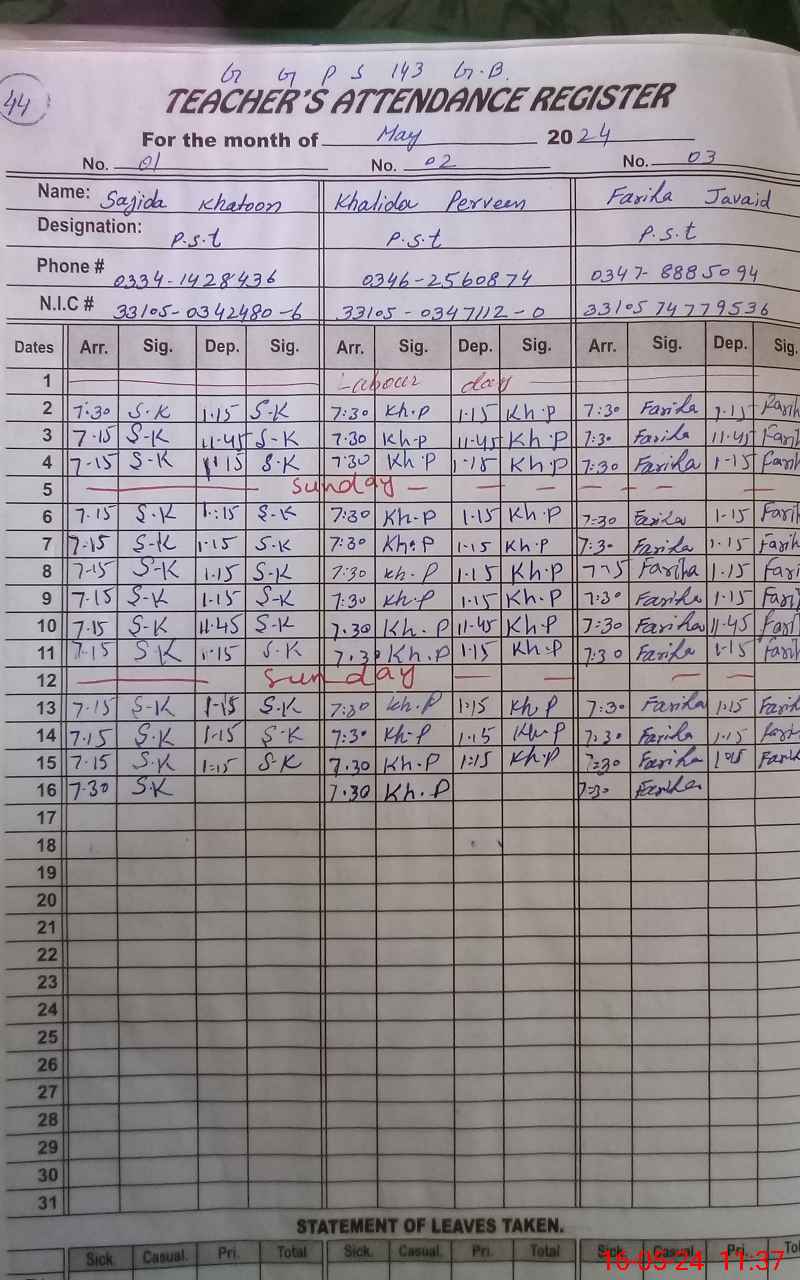 44
G G P S 143 G.B.
TEACHER'S ATTENDANCE REGISTER
For the month of May 2024
No. 01 No. 02 No. 03
Name: Sajida Khatoon Khalida Perveen Fariha Javaid
Designation: P.S.t P.S.t P.S.t
Phone # 0334-1428436 0346-2560874 0347-8885094
N.I.C # 33105-0342480-6 33105-0347112-0 33105 74779536
Dates Arr. Sig. Dep. Sig. Arr. Sig. Dep. Sig. Arr. Sig. Dep. Sig.
1 Labour day
2 7:30 S-K 1-15 S-K 7:30 Kh.P 1-15 Kh.P 7:30 Fariha 1-15 Fariha
3 7-15 S-K 11-45 S-K 7.30 Kh-P 11-45 Kh.P 7:30 Fariha 11-45 Fari
4 7-15 S-K 1-15 S.K 7:30 Kh.P 1-15 Kh.P 7:30 Fariha 1-15 Fari
5 Sunday
6 7-15 S-K 1:15 S-K 7:30 Kh-P 1.15 Kh.P 7:30 Fariha 1-15 Fari
7 7-15 S-K 1-15 S.K 7:30 Kh.P 1-15 Kh.P 7:30 Fariha 1-15 Fari
8 7-15 S-K 1.15 S-K 7:30 Kh.P 1-15 Kh.P Fariha 1-15 Fari
9 7-15 S-K 1-15 S-K 7:30 Kh.P 1-15 Kh.P 7:30 Fariha 1-15 Fari
10 7.15 S-K 11.45 S-K 7.30 Kh.P 11-45 Kh.P 7:30 Fariha 11-45 Fari
11 7-15 S.K 1-15 S.K 7.30 Kh.P 1-15 Kh.P 7:30 Fariha 1-15 Fari
12 Sunday
13 7-15 S-K 1-15 S.K 7:30 Kh.P 1:15 Kh P 7:30 Fariha 1:15 Fari
14 7.15 S.K 1-15 S-K 7:30 Kh-P 1.15 Kh-P 7:30 Fariha 1-15 Fari
15 7-15 S.K 1:15 S-K 7.30 Kh.P 1:15 Kh.P 7:30 Fariha Fari
16 7-30 S.K 7.30 Kh.P 7:30 Fariha
17
18
19
20
21
22
23
24
25
26
27
28
29
30
31
STATEMENT OF LEAVES TAKEN.
Sick Casual. Pri. Total Sick. Casual. Pri. Total Sick. Casual Pri. Tot
16-05-24 11:37